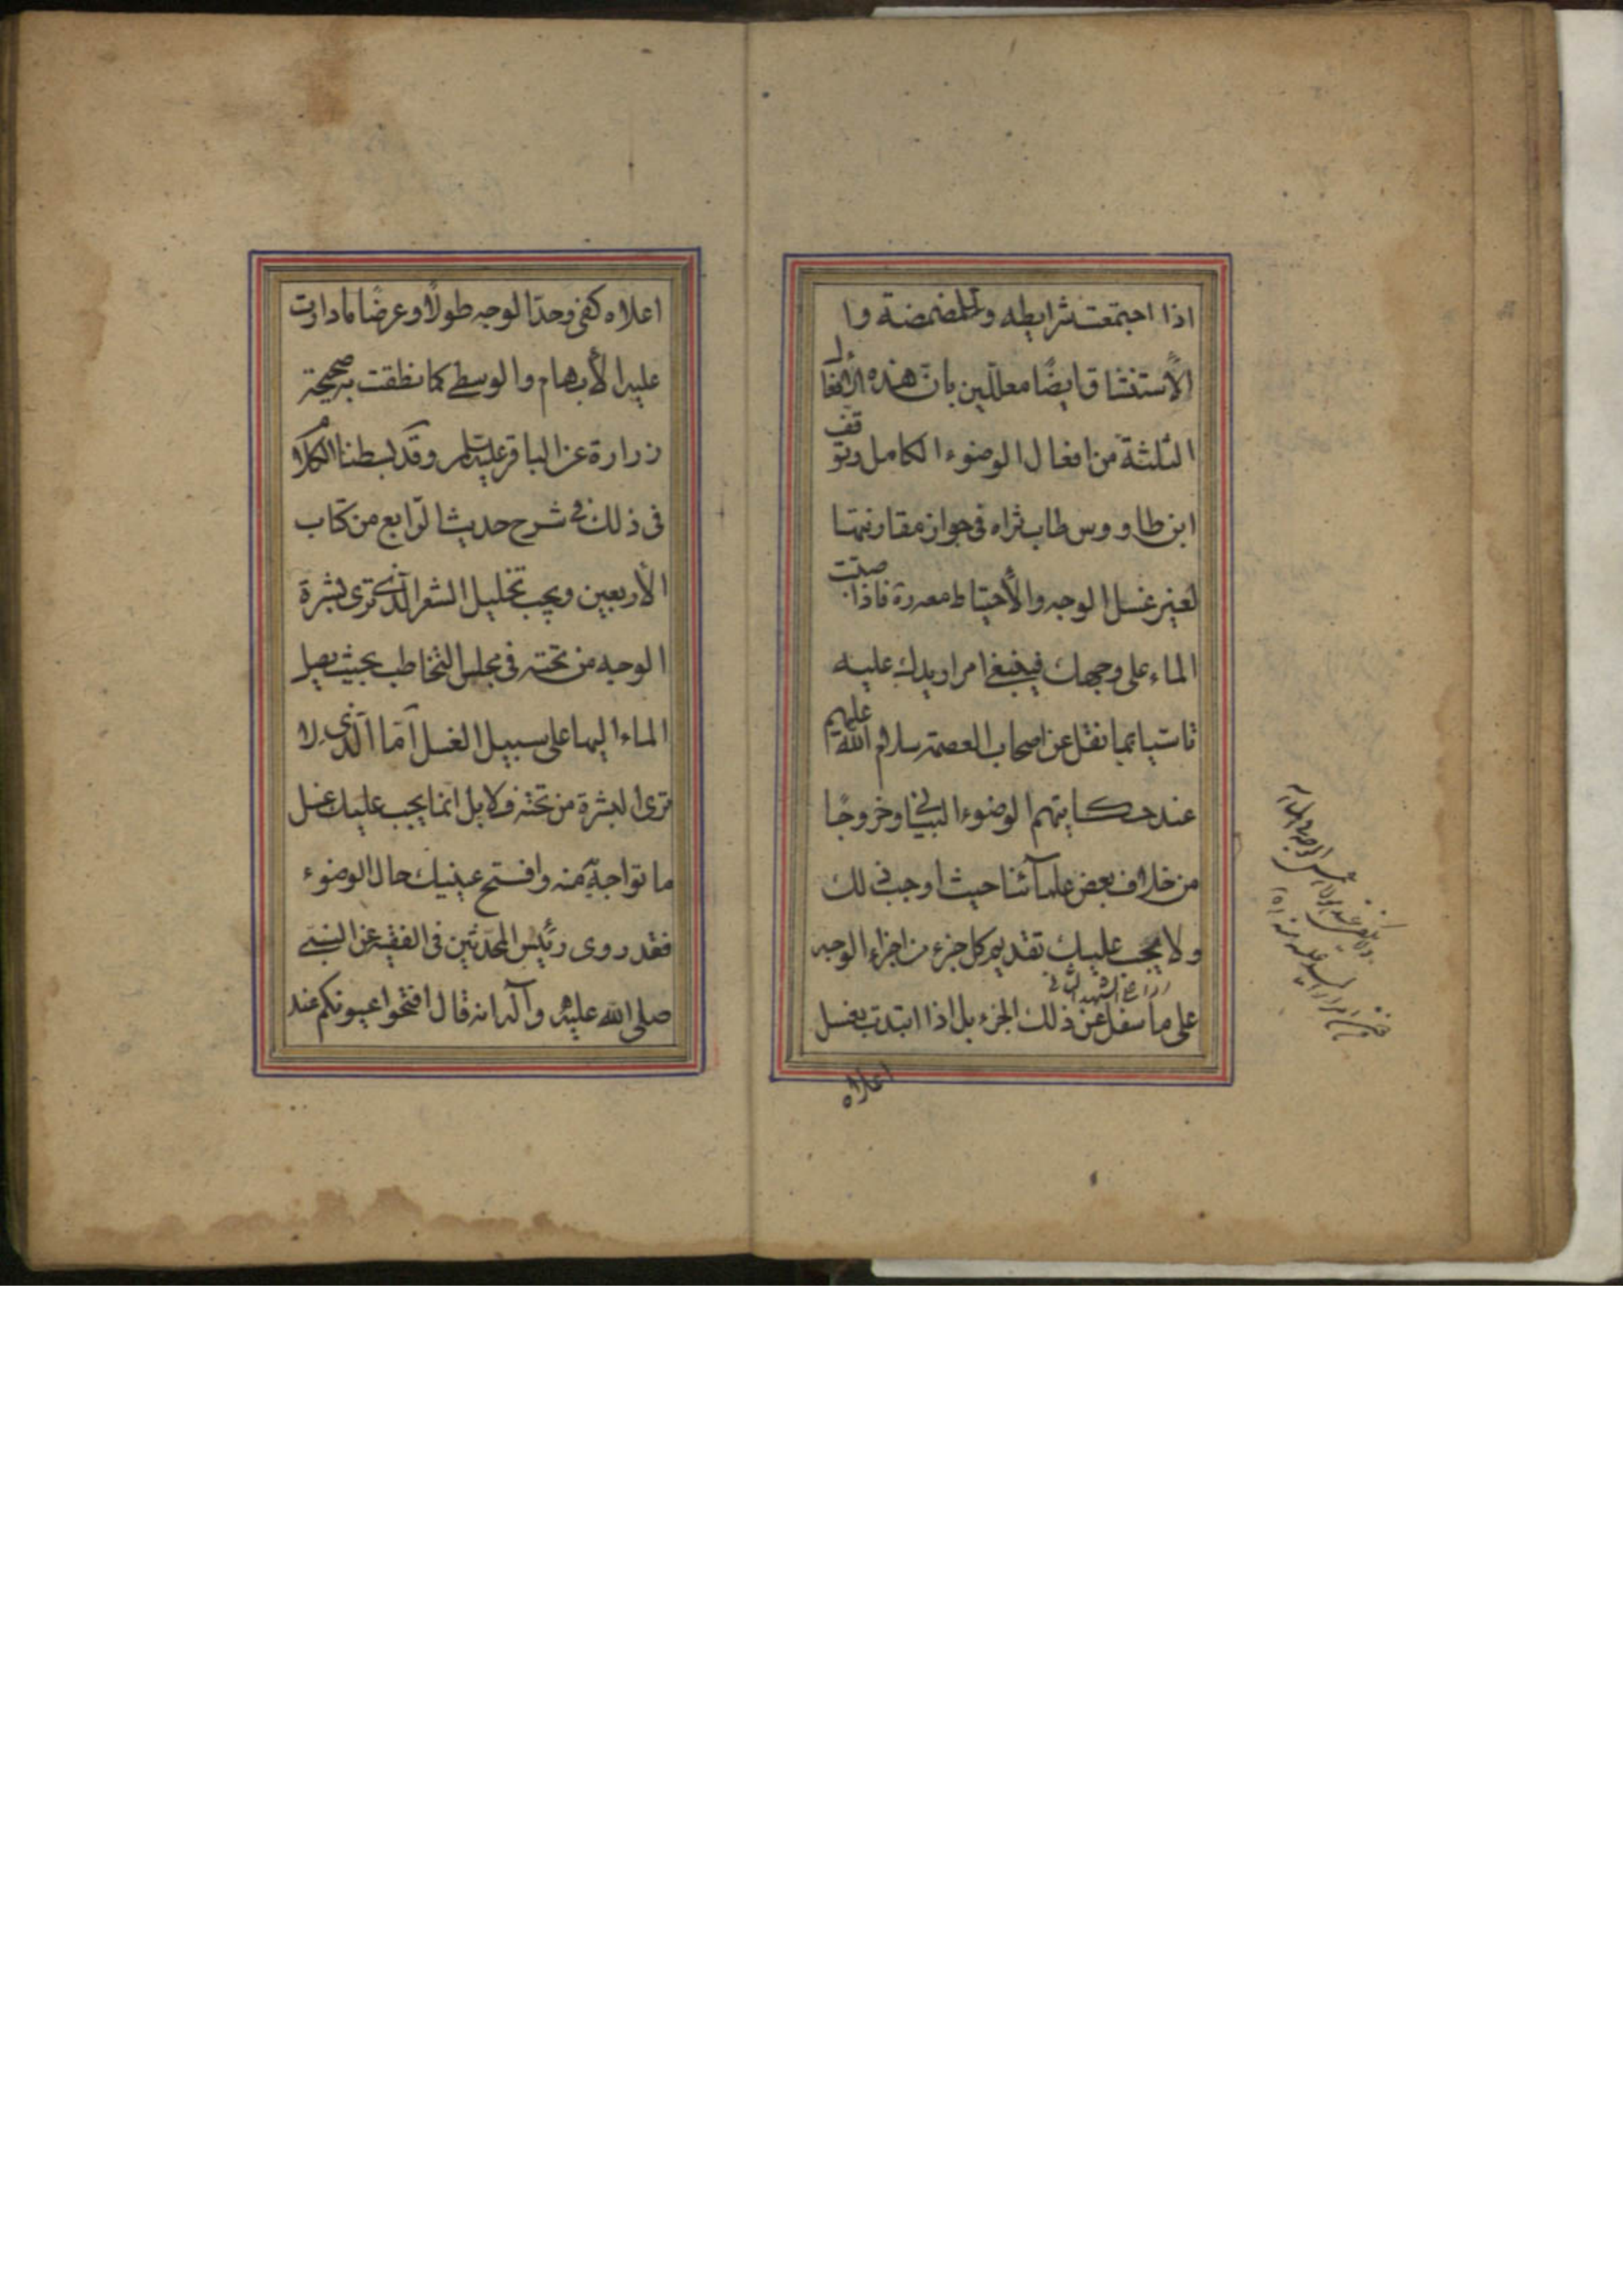 اذا اجتمعت شرايطه وللمضمضة وا
الأستنشاق ايضًا معلّلين بانّ هذه الأفعال
الثلثة من افعال الوضوء الكامل وتوقف
ابن طاووس طاب ثراه في جواز مقارنتها
لغير غسل الوجه والأحتياط معه ره فاذا صببت
الماء على وجهك فينبغي امرار يدك عليه
تاسّيا بما نقل عن اصحاب العصمة سلام الله عليهم
عند حكايتهم الوضوء البياني وخروجًا
من خلاف بعض علمآئنا حيث اوجب ذلك
ولا يجب عليك تقديم كل جزء من اجزاء الوجه
على ما سفل عن ذلك الجزء بل اذا ابتدت بغسل
اعلاه
اعلاه كفى وحدّ الوجه طولًا وعرضًا ما دارت
عليه الأبهام والوسطى كما نطقت به صحيحة
زرارة عن الباقر عليه السلام وقد بسطنا الكلام
في ذلك في شرح حديث الرّابع من كتاب
الأربعين ويجب تخليل الشعر الّذي ترى بشرة
الوجه من تحته في مجلس التخاطب بحيث يصل
الماء اليها على سبيل الغسل امّا الّذي لا
ترى البشرة من تحته فلا بل انما يجب عليك غسل
ما تواجه منه وافتح عينيك حال الوضوء
فقد روى رئيس المحدّثين في الفقيه عن النبي
صلى الله عليه وآله انه قال افتحوا عيونكم عند